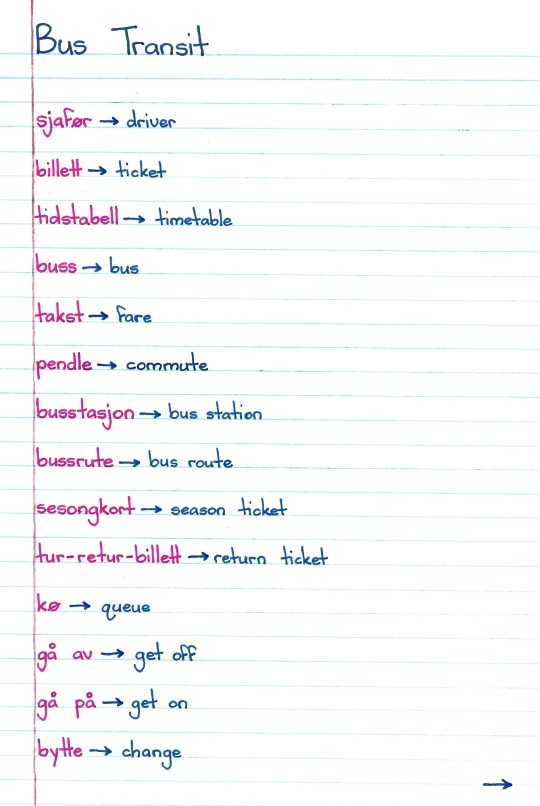 Bus Transit
sjafør → driver
billett → ticket
tidstabell → timetable
buss → bus
takst → fare
pendle → commute
busstasjon → bus station
bussrute → bus route
sesongkort → season ticket
tur-retur-billett → return ticket
kø → queue
gå av → get off
gå på → get on
bytte → change
→